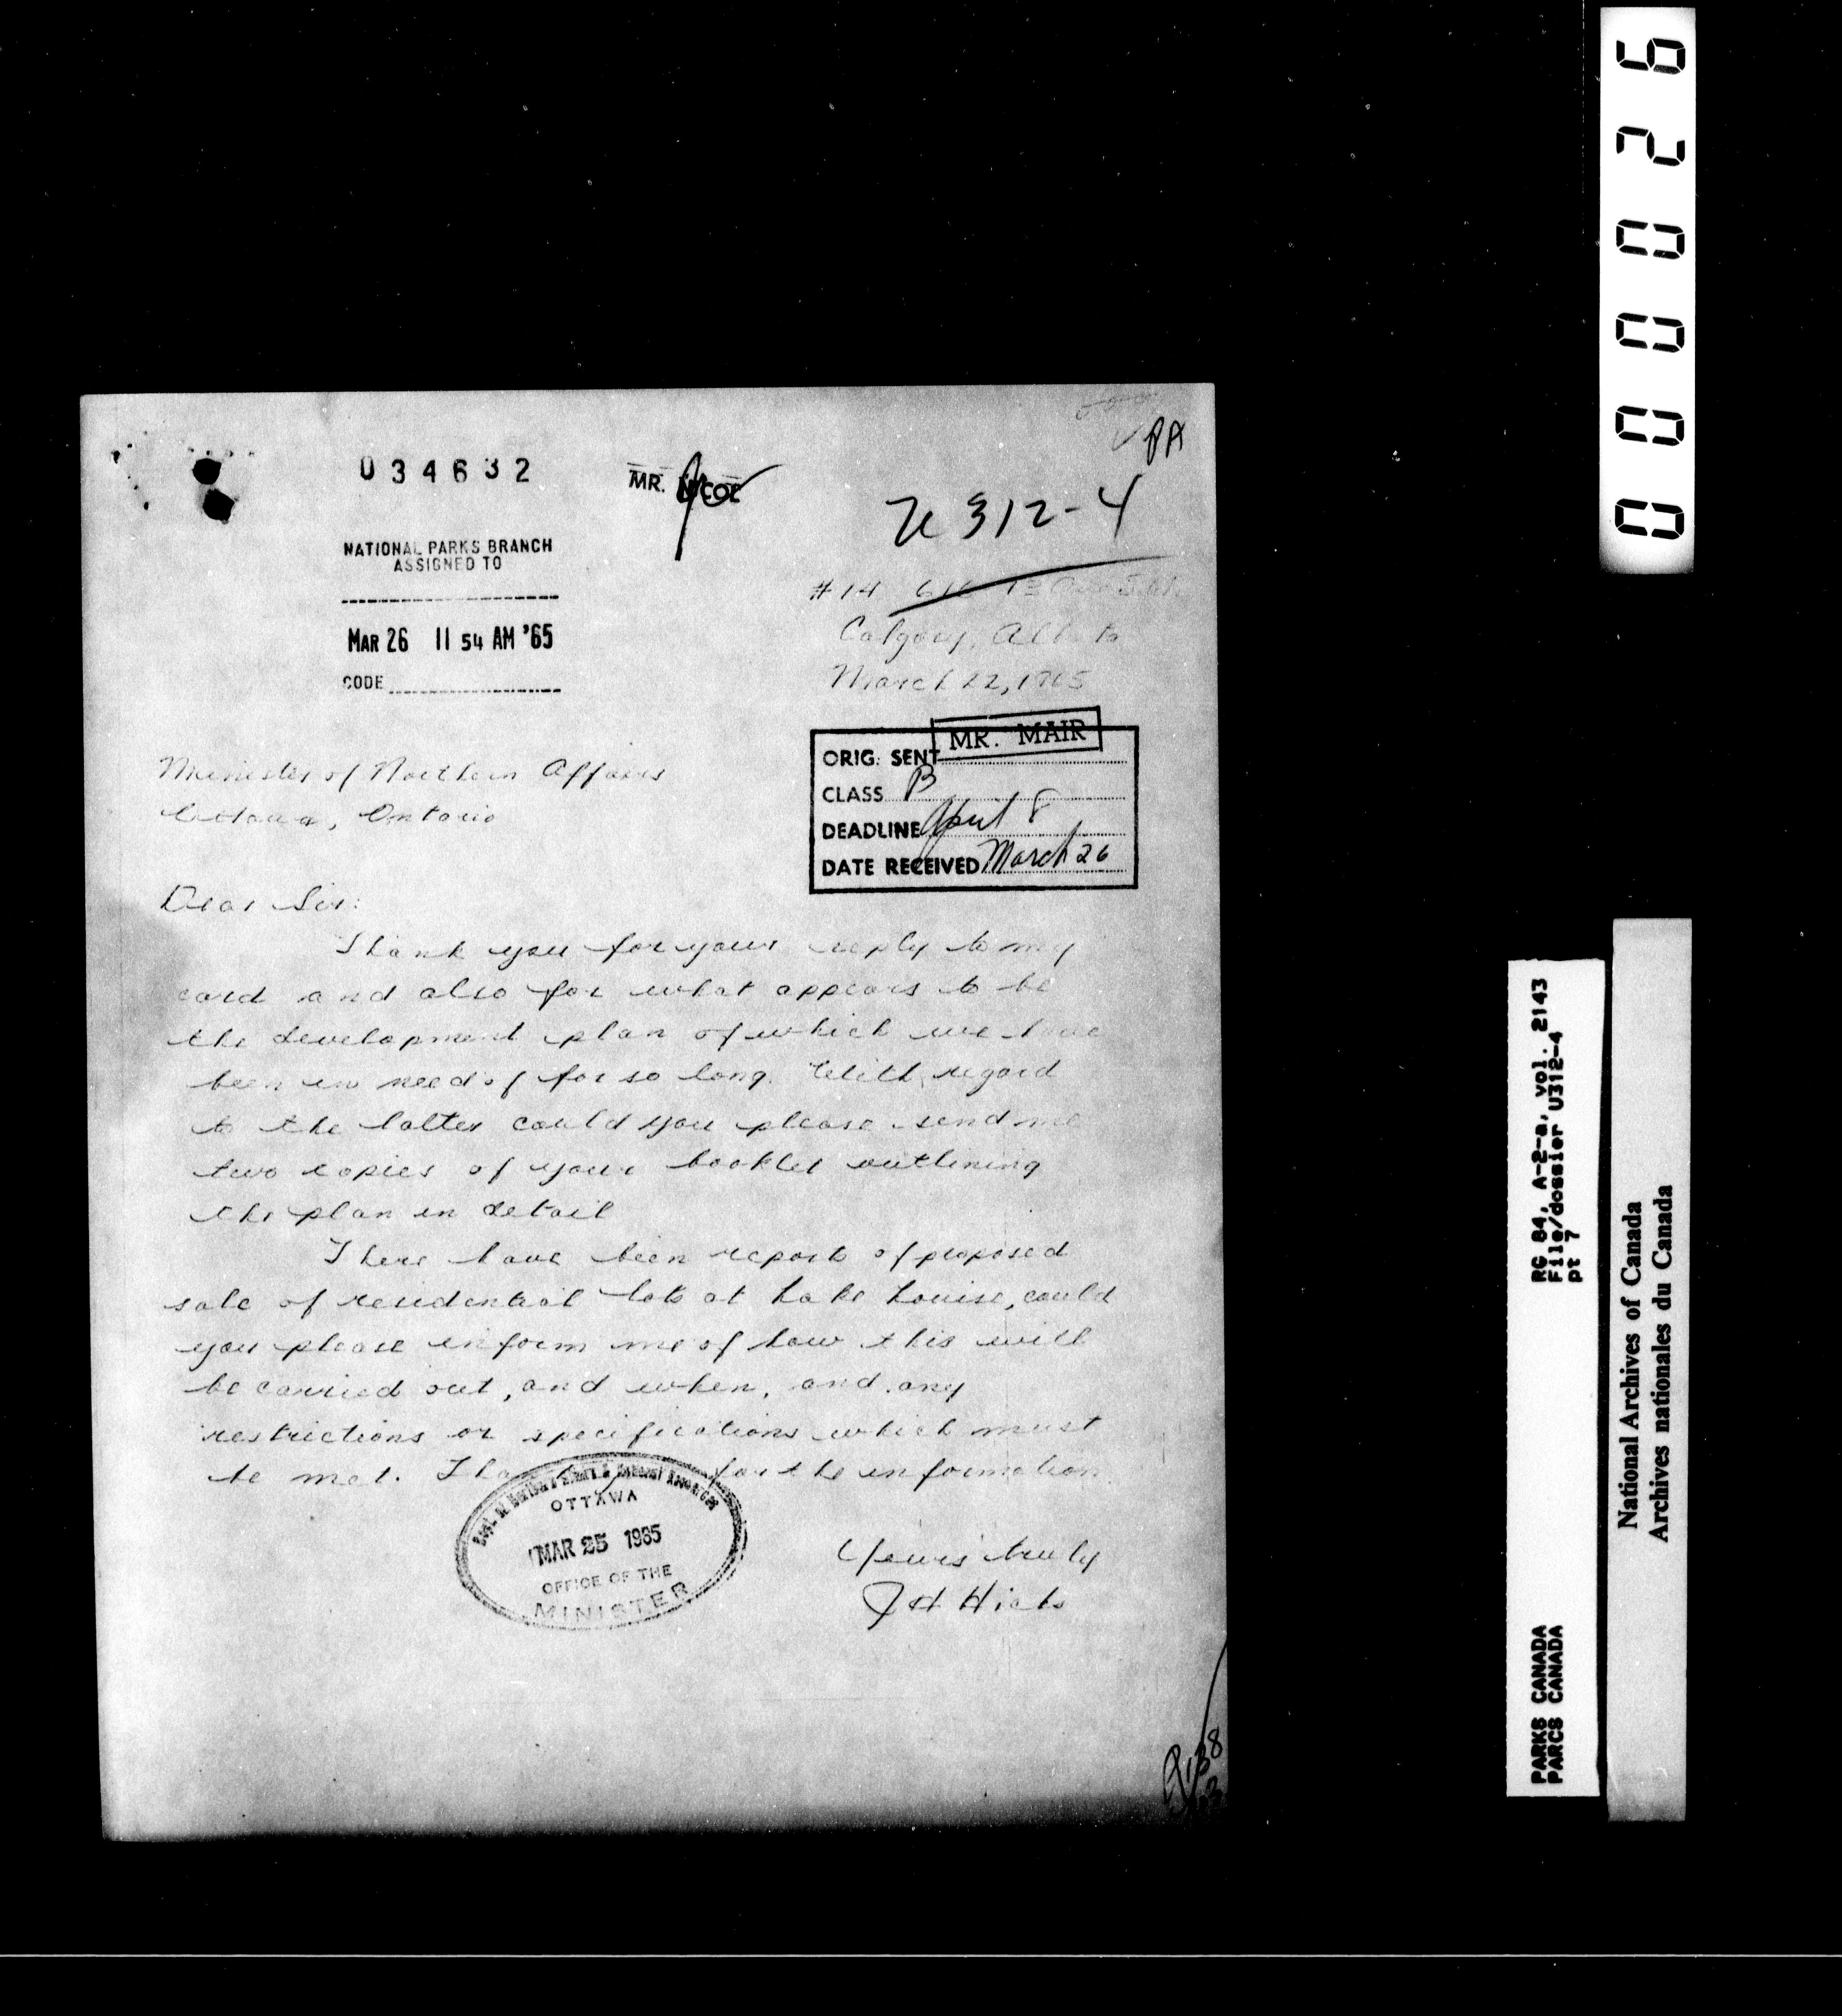 PA
034632
MR. NICOL
U312-4
NATIONAL PARKS BRANCH
ASSIGNED TO
MAR 26 11 54 AM '65
CODE
#14 616 13 Ave S.W.
Calgary, Alberta
March 22, 1965
MR. MAIR
ORIG. SENT
CLASS B
DEADLINE April 8
DATE RECEIVED March 26
Minister of Northern Affairs
Ottawa, Ontario
Dear Sir:
Thank you for your reply to my
card and also for what appears to be
the development plan of which we have
been in need of for so long. With regard
to the latter could you please send me
two copies of your booklet outlining
the plan in detail
There have been reports of proposed
sale of residential lots at Lake Louise, could
you please inform me of how this will
be carried out, and when, and any
restrictions or specifications which must
be met. Thank you for the information.
Dept. of Northern Affairs & National Resources
OTTAWA
MAR 25 1965
OFFICE OF THE
MINISTER
Yours truly
J H Hicks
000026
RG 84, A-2-a, vol. 2143
File/dossier U312-4
pt 7
PARKS CANADA
PARCS CANADA
National Archives of Canada
Archives nationales du Canada